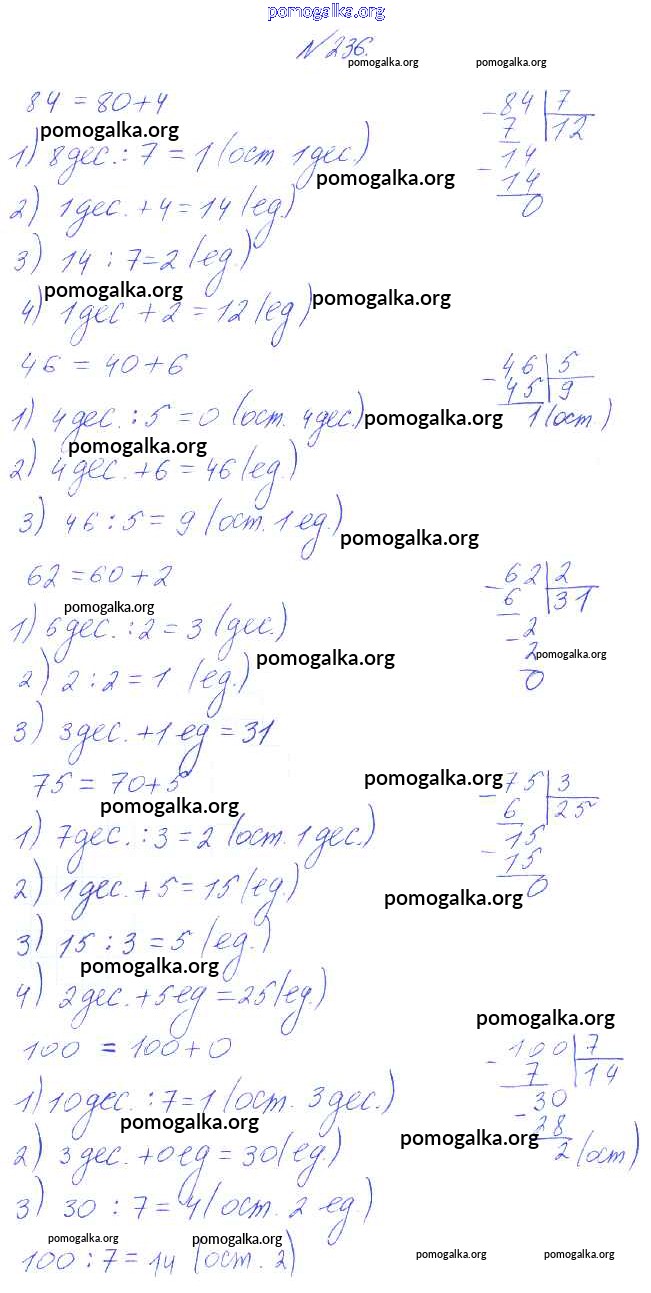 pomogalka.org
№ 236.
pomogalka.org pomogalka.org
84 = 80+4
pomogalka.org
1) 8дес. : 7 = 1 (ост 1дес.)
pomogalka.org
2) 1дес. + 4 = 14 (ед.)
3) 14 : 7 = 2 (ед.)
pomogalka.org pomogalka.org
4) 1дес + 2 = 12 (ед)
- 84 | 7
7 | 12
- 14
14
0
46 = 40+6
1) 4дес. : 5 = 0 (ост. 4дес.) pomogalka.org
pomogalka.org
2) 4дес. + 6 = 46 (ед.)
3) 46 : 5 = 9 (ост. 1 ед.)
pomogalka.org
- 46 | 5
45 | 9
1 (ост)
62 = 60+2
pomogalka.org
1) 6дес. : 2 = 3 (дес.)
pomogalka.org
2) 2 : 2 = 1 (ед.)
3) 3дес. + 1 ед = 31
- 62 | 2
6 | 31
- 2
2 pomogalka.org
0
75 = 70+5
pomogalka.org
pomogalka.org
1) 7дес. : 3 = 2 (ост. 1 дес.)
2) 1дес. + 5 = 15 (ед.)
pomogalka.org
3) 15 : 3 = 5 (ед.)
pomogalka.org
4) 2дес. + 5ед = 25 (ед.)
- 75 | 3
6 | 25
- 15
15
0
pomogalka.org
100 = 100+0
1) 10дес. : 7 = 1 (ост. 3дес.)
pomogalka.org pomogalka.org
2) 3дес. + 0ед = 30 (ед.)
3) 30 : 7 = 4 (ост. 2 ед.)
- 100 | 7
7 | 14
- 30
28
2 (ост)
pomogalka.org pomogalka.org
100 : 7 = 14 (ост. 2)
pomogalka.org pomogalka.org